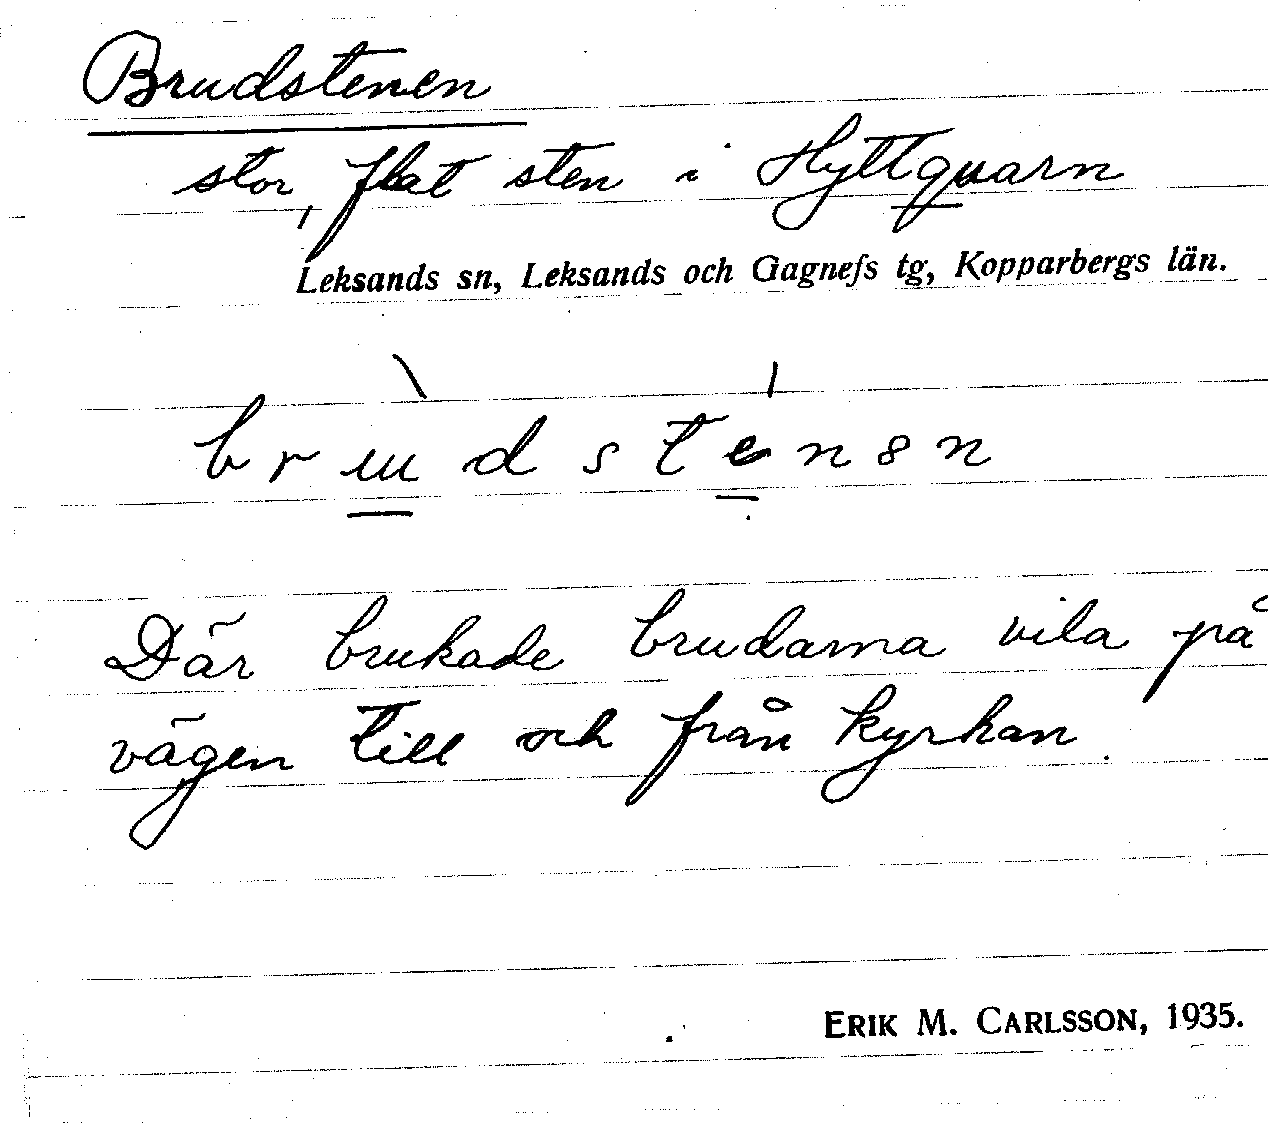 Brudstenen
stor, flat sten i Hyttquarn
Leksands sn, Leksands och Gagnefs tg, Kopparbergs län.
brɯ̲̀dsté̲nən
Där brukade brudarna vila på
vägen till och från kyrkan.
ERIK M. CARLSSON, 1935.